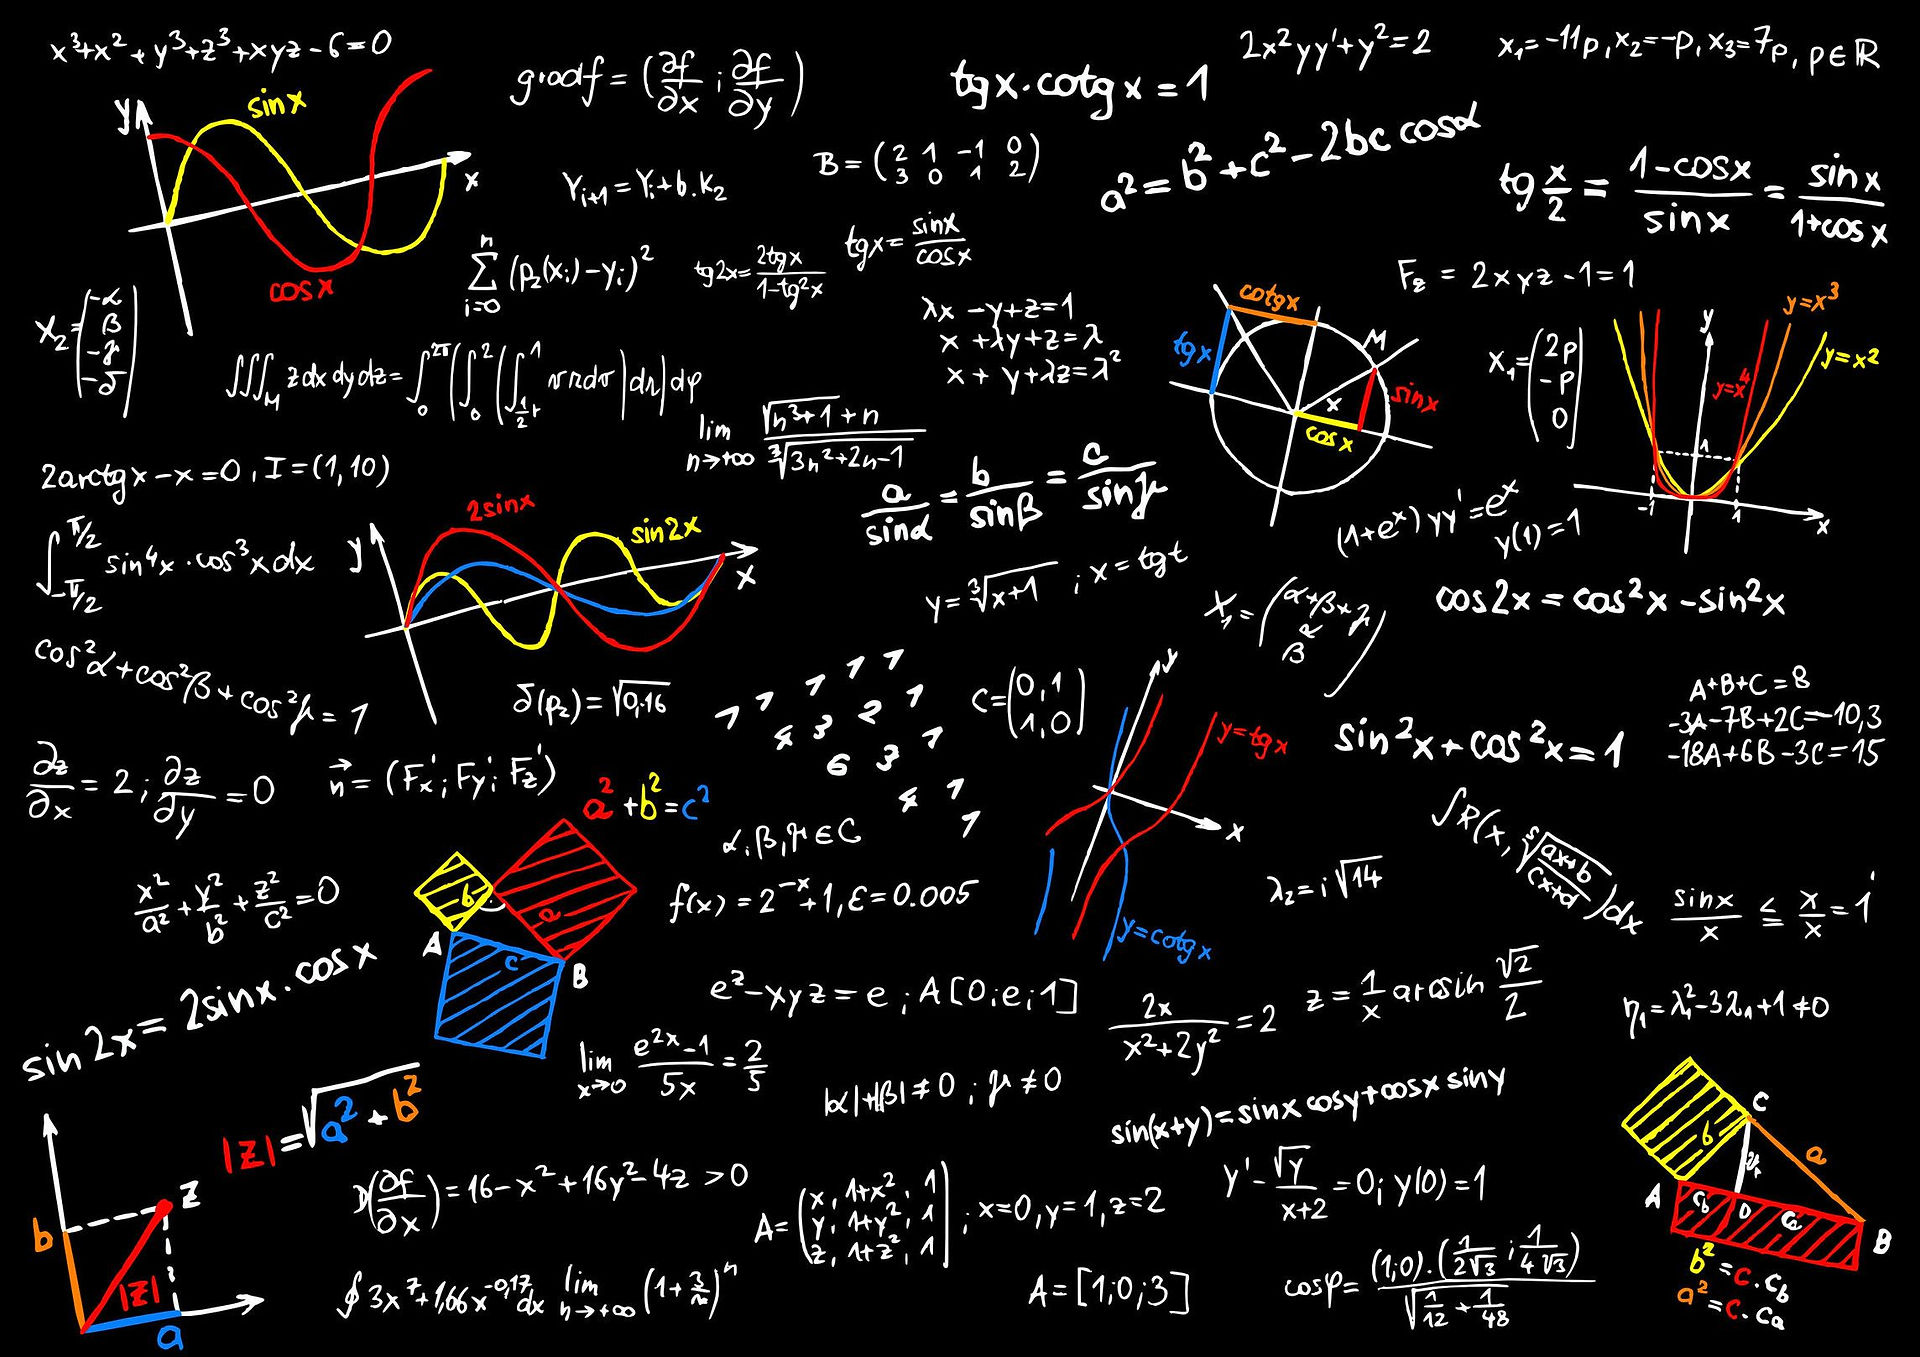 x³+x²+y³+z³+xyz-6=0
gradf = (∂f/∂x ; ∂f/∂y)
tgx·cotgx=1
2x²yy'+y²=2
x₁=-11p, x₂=-p, x₃=7p, p∈ℝ
y
sinx
x
cosx
Yᵢ₊₁=Yᵢ+b.K₂
B=(2 1 -1 0
3 0 1 2)
a²=b²+c²-2bc cosα
tg x/2 = 1-cosx/sinx = sinx/1+cosx
n
∑ (p₂(xᵢ)-yᵢ)²
i=0
tg2x=2tgx/1-tg²x
tgx=sinx/cosx
F_z = 2xyz-1=1
X₂=(-α
β
-γ
-δ)
∭_M zdxdydz=∫₀^2π(∫₀²(∫_½r^1 vrdv|dr|dφ
λx-y+z=1
x+λy+z=λ
x+y+λz=λ²
cotgx
tgx
M
sinx
x
cosx
X₁=(2p
-p
0)
y
y=x³
y=x²
y=x⁴
1
-1
1
x
lim n→+∞ √n³+1+n / ∛3n²+2n-1
2arctgx-x=0, I=(1,10)
a/sinα = b/sinβ = c/sinγ
(1+eˣ)yy'=eˣ
y(1)=1
∫_-π/2^π/2 sin⁴x·cos³xdx
y
2sinx
sin2x
x
y=∛x+1 ; x=tgt
X₁=(α+β+γ
α
β)
cos2x=cos²x-sin²x
cos²α+cos²β+cos²γ=1
δ(p₂)=√0,16
1 1 1 1 1
4 3 2 1
6 3 1
4 1
1
C=(0,1
1,0)
y
y=tgx
x
y=cotgx
sin²x+cos²x=1
A+B+C=8
-3A-7B+2C=-10,3
-18A+6B-3C=15
∂z/∂x=2; ∂z/∂y=0
n⃗=(Fx'; Fy'; Fz')
a²+b²=c²
b
a
A
c
B
α,β,γ∈C
f(x)=2⁻ˣ+1, ε=0.005
λ₂=i√14
∫R(x, ⁵√ax+b/cx+d)dx
sinx/x ≤ x/x=1
x²/a²+y²/b²+z²/c²=0
sin2x=2sinx·cosx
e^z-xyz=e; A[0;e;1]
2x/x²+2y²=2
z=1/x arcsin √2/2
η₁=λ₁²-3λ₁+1≠0
lim x→0 e²ˣ-1/5x=2/5
|α|+|β|≠0; γ≠0
sin(x+y)=sinxcosy+cosxsiny
|z|=√a²+b²
z
b
|z|
a
D(∂f/∂x)=16-x²+16y²-4z>0
A=(x, 1+x², 1
y, 1+y², 1
z, 1+z², 1); x=0,y=1,z=2
y'-√y/x+2=0; y(0)=1
C
b
a
A
c_b
D
c_a
B
b²=c.c_b
a²=c.c_a
∮3x⁷+1,66x^-0,17dx
lim n→+∞ (1+3/n)ⁿ
A=[1;0;3]
cosφ=(1;0).(1/2√3 ; 1/4√3)/√1/12+1/48